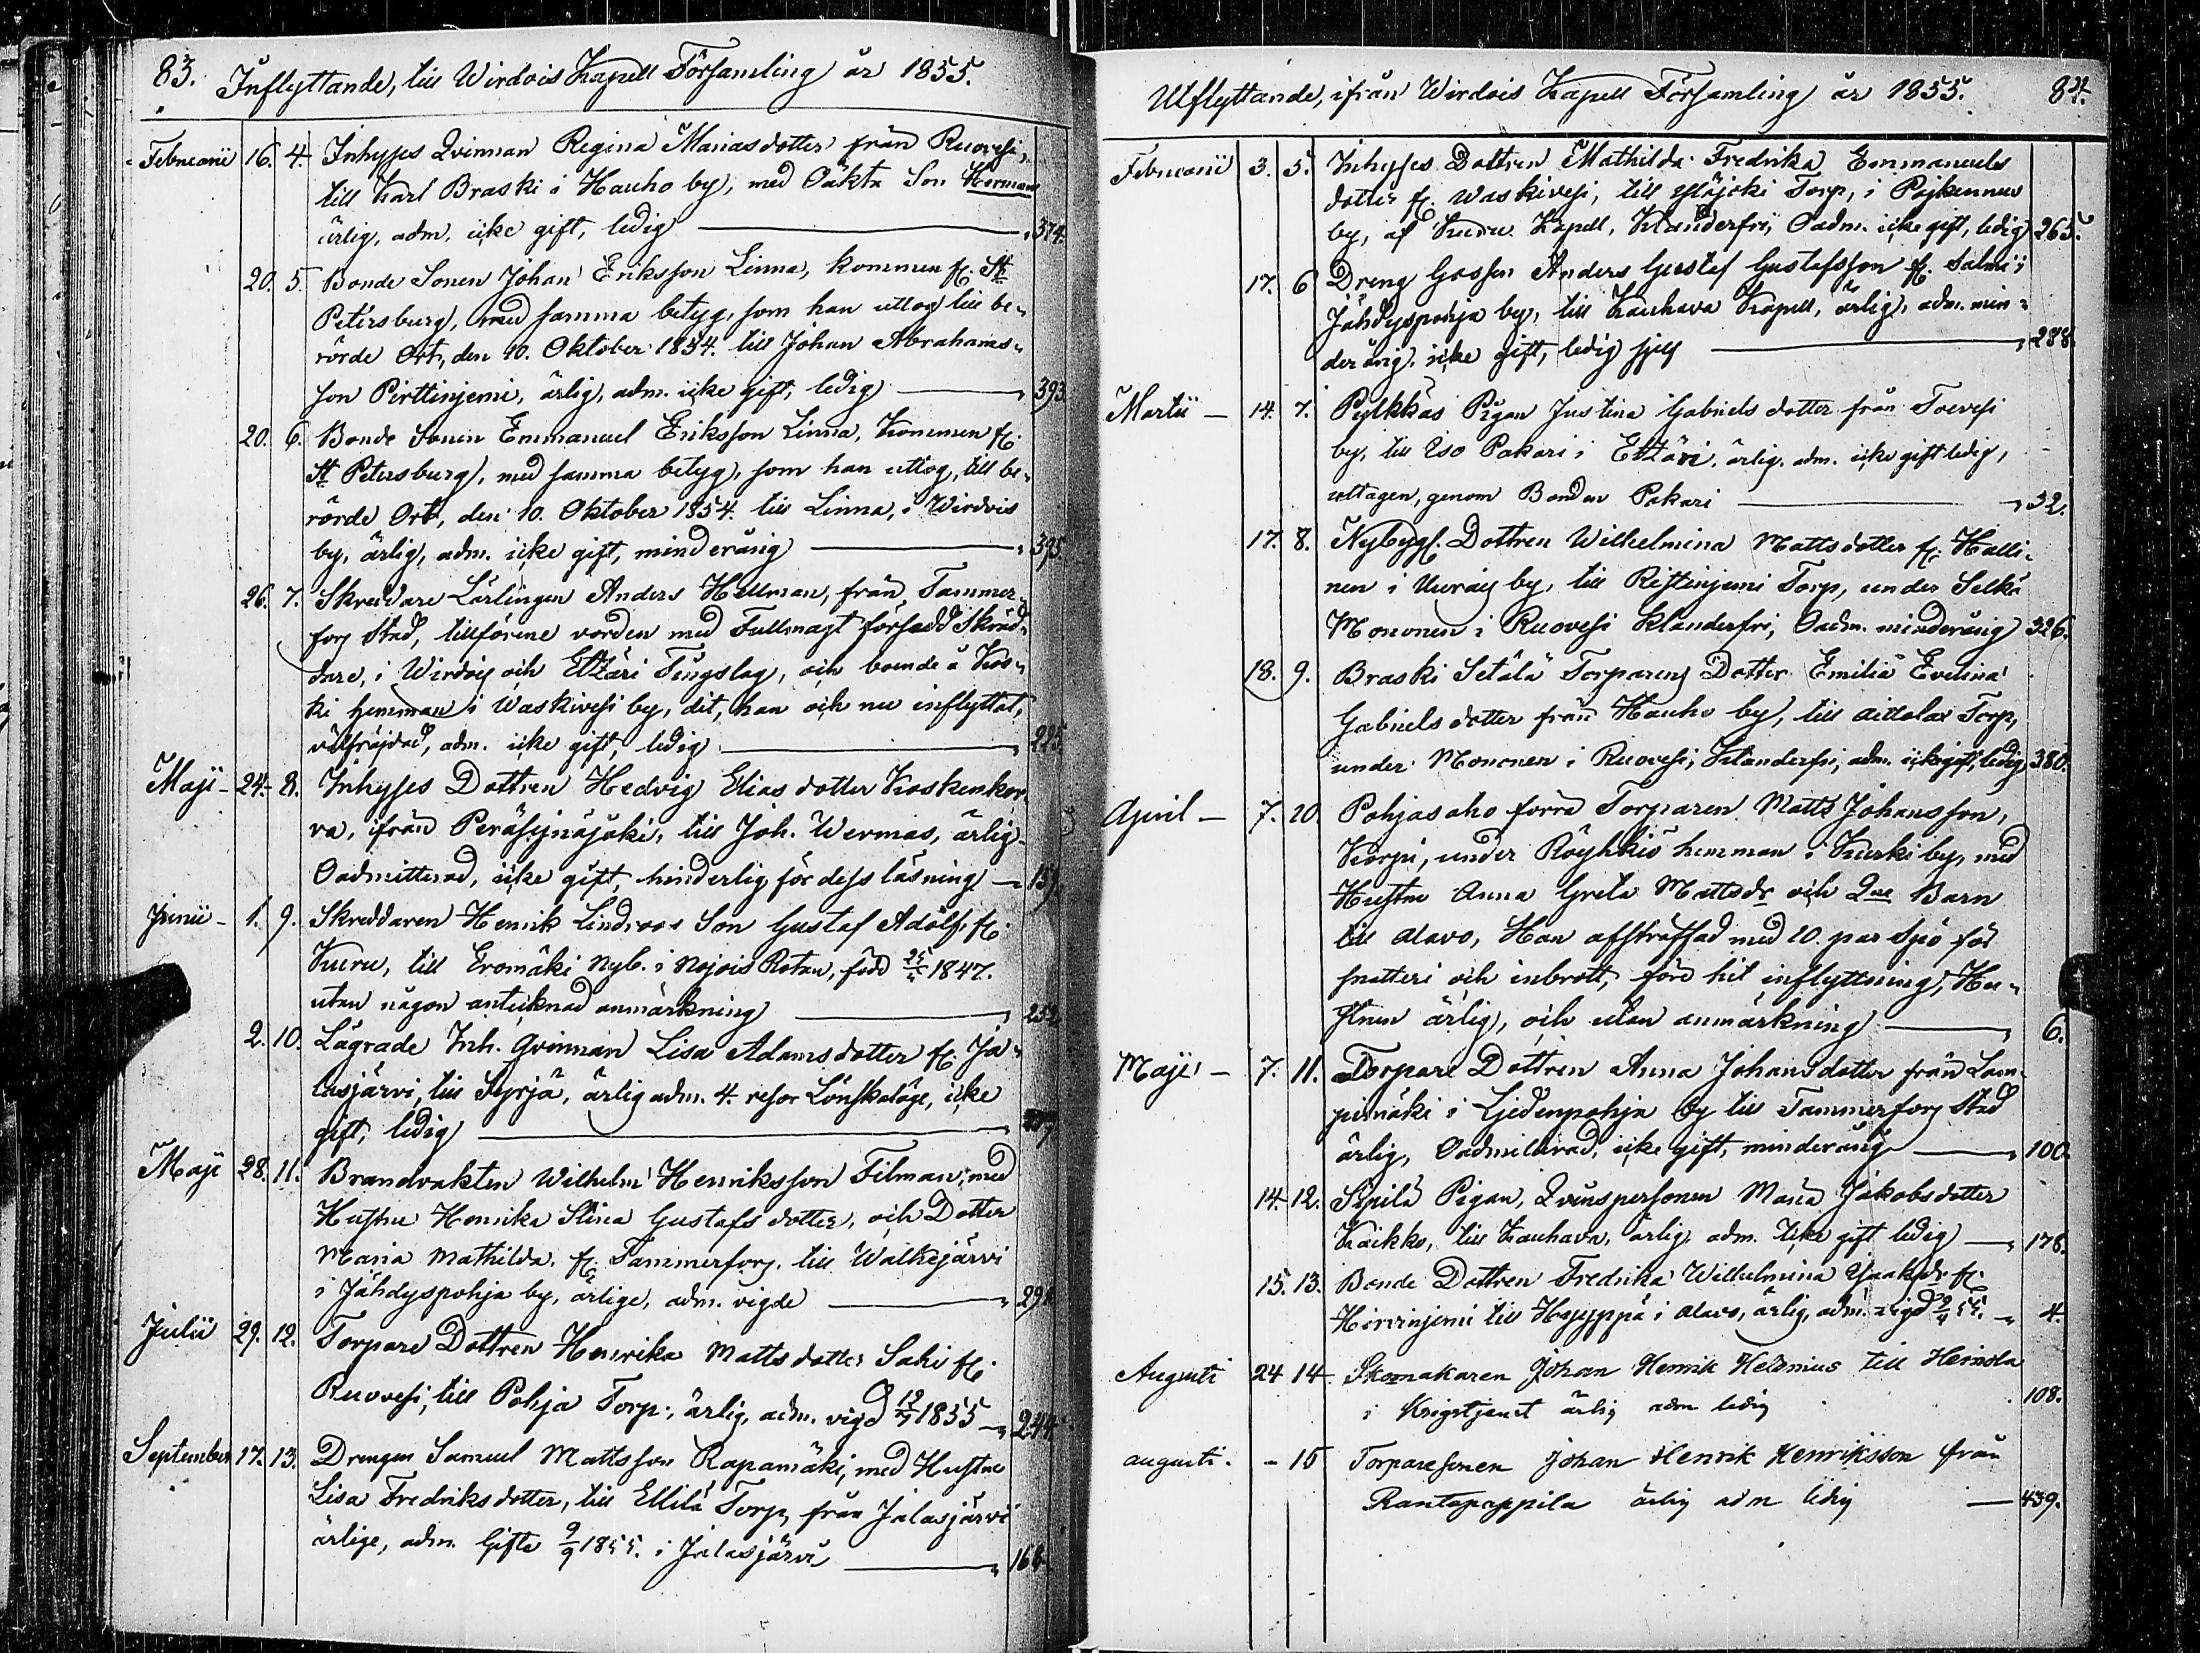 83. Inflyttande, till Wirdois Kapell Församling år 1855.
Februarii 16. 4. Inhyses Qvinnan Regina Mariasdotter från Ruovesi,
till Karl Braski i Hauho by, med Oäkta Son Herman
ärlig, adm. icke gift, ledig 374.
20. 5. Bonde Sonen Johan Eriksson Linna, kommen fr. St
Petersburg, med samma betyg, som han uttog till be-
rörde Ort, den 10. Oktober 1854. till Johan Abrahams-
son Pirttinjemi, ärlig, adm. icke gift, ledig 393.
20. 6. Bonde Sonen Emmanuel Eriksson Linna, Kommen fr.
St Petersburg, med samma betyg, som han uttog, till be-
rörde Ort, den 10. Oktober 1854. till Linna, i Wirdois
by, ärlig, adm. icke gift, minderårig 395.
26. 7. Skreddare Lärlingen Anders Hellman, från Tammer-
fors Stad, tillförene vorden med Fullmagt försedd Skräd-
dare, i Wirdois och Etzäri Tingslag, och boende å Kos-
ki hemman i Waskivesi by, dit, han och nu inflyttat,
välfräjdad, adm. icke gift, ledig 225.
Maji 24. 8. Inhyses Dottren Hedvig Elias dotter Koskenkor-
va, ifrån Peräseinäjoki, till Joh. Wermas, ärlig
Oadmitterad, icke gift, hinderlig för dess läsning 159.
Junii 1. 9. Skreddaren Henrik Lindroos Son Gustaf Adolf, fr.
Kuru, till Eromäki Nyb. i Nojois Rotan, född 1847.
utan någon antecknad anmärkning 252.
2. 10. Lägrade Inh. Qvinnan Lisa Adamsdotter fr. Ja-
lasjärvi, till Syrjä, ärlig adm. 4. resor Lönskaläge, icke
gift, ledig
Maji 28. 11. Brandvakten Wilhelm Henriksson Filman, med
Hustru Henrika Stina Gustafs dotter, och Dotter
Maria Mathilda, fr. Tammerfors, till Walkejärvi
i Jähdyspohja by, ärlige, adm. vigde
Julii 29. 12. Torpare Dottren Henrika Matts dotter Sahi fr.
Ruovesi, till Pohja Torp, ärlig, adm. vigd 1855 244.
September 17. 13. Drengen Samuel Mattsson Rapamäki, med Hustru
Lisa Fredriksdotter, till Ellilä Torp, från Jalasjärvi
ärlige, adm. Gifte 9/9 1855. i Jalasjärvi 168.
Utflyttande, ifrån Wirdois Kapell Församling år 1855. 84.
Februarii 3. 5. Inhyses Dottren Mathilda Fredrika Emmanuels
dotter fr. Waskivesi, till Torp, i Pojkennus
by, af Kuru Kapell, Klanderfri, Oadm. icke gift, ledig 265.
17. 6 Dreng Gossen Anders Gustaf Gustafsson fr. Salmi i
Jähdyspohja by, till Kauhava Kapell, ärlig, adm. min-
derårig. icke gift, ledig sjelf 288.
Martii 14. 7. Pylkkäs Pigan Justina Gabriels dotter från Toevesi
by, till Iso Pakari i Etzäri, ärlig. adm. icke gift ledig,
uttagen, genom Bonden Pakari 32.
17. 8. Nybygs. Dottren Wilhelmina Mattsdotter fr. Halli-
nen i Uuras by, till Ristinjemi Torp, under Selkä
Mononen i Ruovesi Klanderfri, Oadm. minderårig 326.
18. 9. Braski Setälä Torparens Dotter Emilia Evelina
Gabriels dotter från Hauho by, till Aittolax Torp,
under Mononen i Ruovesi, Klanderfri, adm. icke gift, ledig 380.
April 7. 10. Pohjasaho förra Torparen Matts Johansson,
Korpi, under Röyhkiö hemman i Kurki by, med
Hustru Anna Greta Mattsdr och 2ne Barn
till Alavo, Han affstraffad med 20. par Spö för
snatteri och inbrott, före hit inflyttning, Hu-
strun ärlig, och utan anmärkning 6.
Maji 7. 11. Torpare Dottren Anna Johansdotter från Lam-
pimäki i Liedenpohja by till Tammerfors Stad
ärlig, Oadmitterad, icke gift, minderårig 100.
14. 12. Sipilä Pigan, Qvinspersonen Maria Jakobsdotter
Kaikko, till Kauhava, ärlig, adm. icke gift ledig 178.
15. 13. Bonde Dottren Fredrika Wilhelmina Isaksdr fr.
Hirvinjemi till Hyyppä i Alavo, ärlig, adm. vigd 55. 4.
Augusti 24 14 Skomakaren Johan Henrik Helenius till Heinola
i Krigstjenst ärlig adm ledig 108.
augusti. - 15 Torparesonen Johan Henrik Henriksson från
Rantapappila ärlig adm ledig 439.